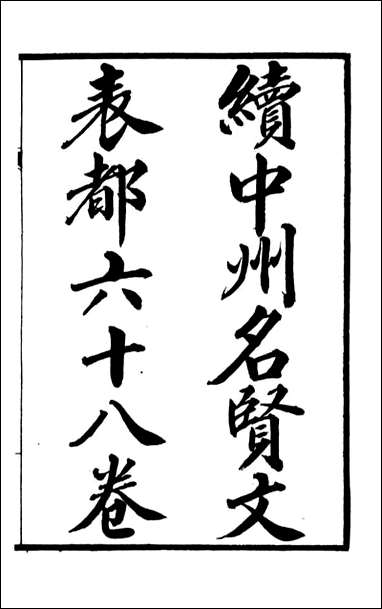 續中州名賢文
表都六十八卷